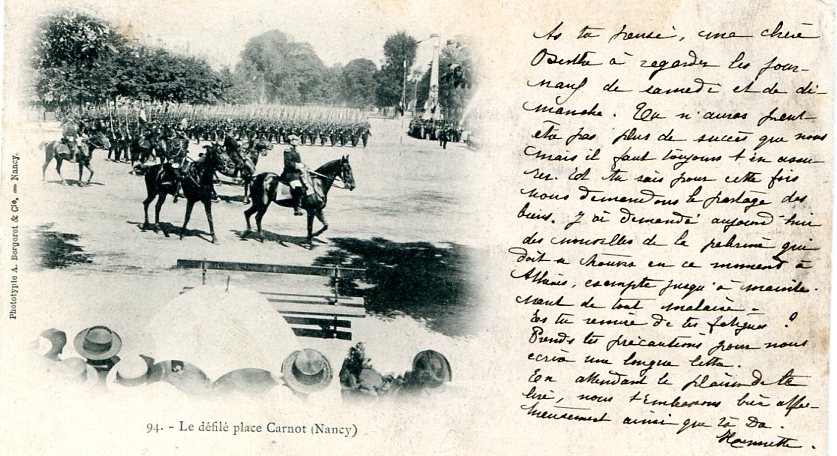 As tu pensé, ma chère
Berthe à regarder les jour-
naux de samedi et de di-
manche. Tu n'auras peut-
etre pas plus de succès que nous
mais il faut toujours t'en assu-
rer. Et tu sais pour cette fois
nous demandons le partage des
biens. J'ai demandé aujourd'hui
des nouvelles de la qui
doit se trouver en ce moment à
Athènes, exempte jusqu'à mainte-
nant de tout malaise -
Es tu remise de tes fatigues ?
Prends tes précautions pour nous
écrire une longue lettre.
En attendant le plaisir de te
lire, nous t'embrassons bien affec-
tueusement ainsi que
Henriette.
Phototypie A. Bergeret & Cie, — Nancy.
94. - Le défilé place Carnot (Nancy)